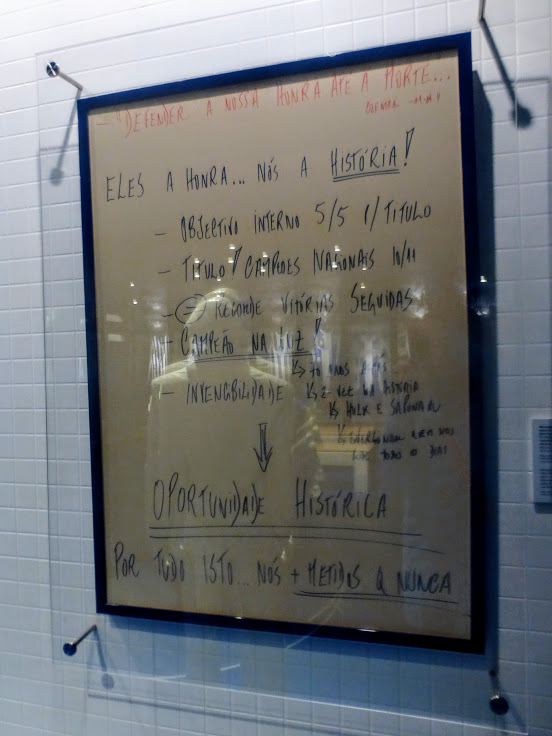 — "DEFENDER A NOSSA HONRA ATÉ A MORTE...
ELES A HONRA... NÓS A HISTÓRIA!
— OBJECTIVO INTERNO 5/5 P/ TITULO
— TITULO! CAMPEÕES NACIONAIS 10/11
— = RECORDE VITÓRIAS SEGUIDAS
+ CAMPEÃO NA LUZ!
↳ 70 ANOS APÓS...
— INVENCIBILIDADE ↳ 2ª VEZ NA HISTÓRIA
↳ HULK E SAPUNARU
TODO O
OPORTUNIDADE HISTÓRICA
POR TUDO ISTO... NÓS + METIDOS Q NUNCA